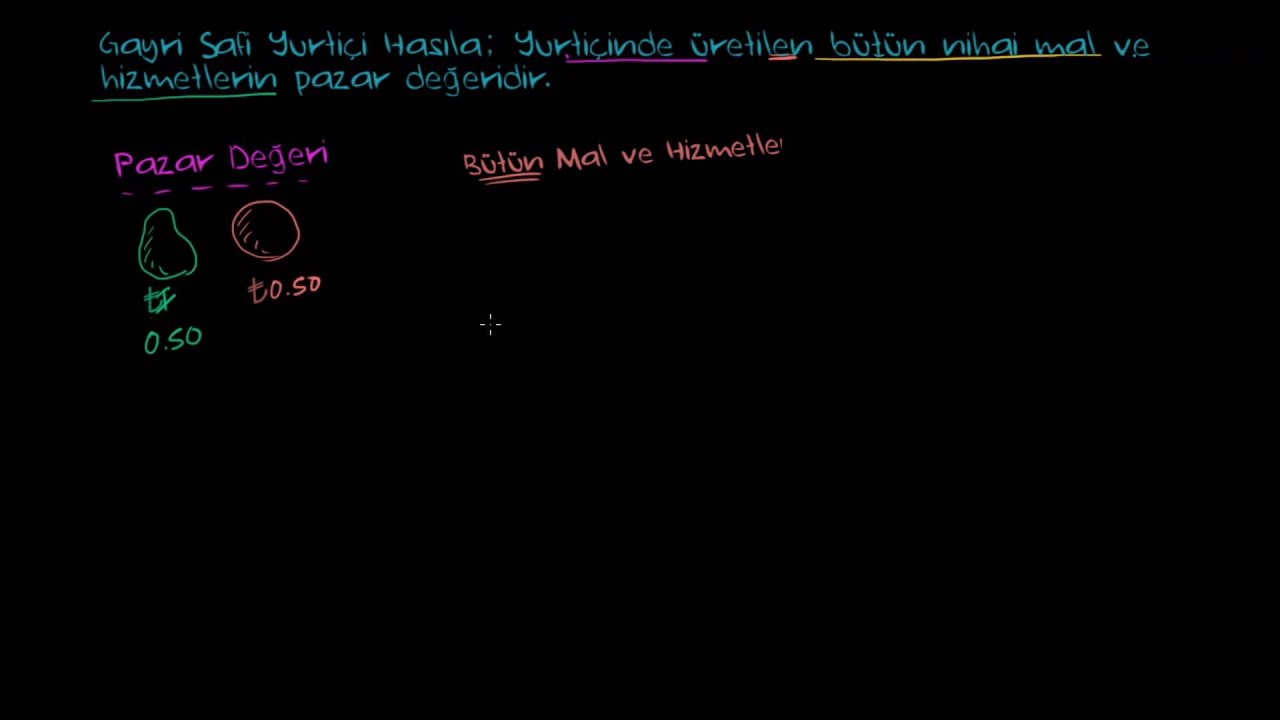 Gayri Safi Yurtiçi Hasıla; Yurtiçinde üretilen bütün nihai mal ve
hizmetlerin pazar değeridir.
Pazar Değeri
Bütün Mal ve Hizmetle
₺0.50
0.50